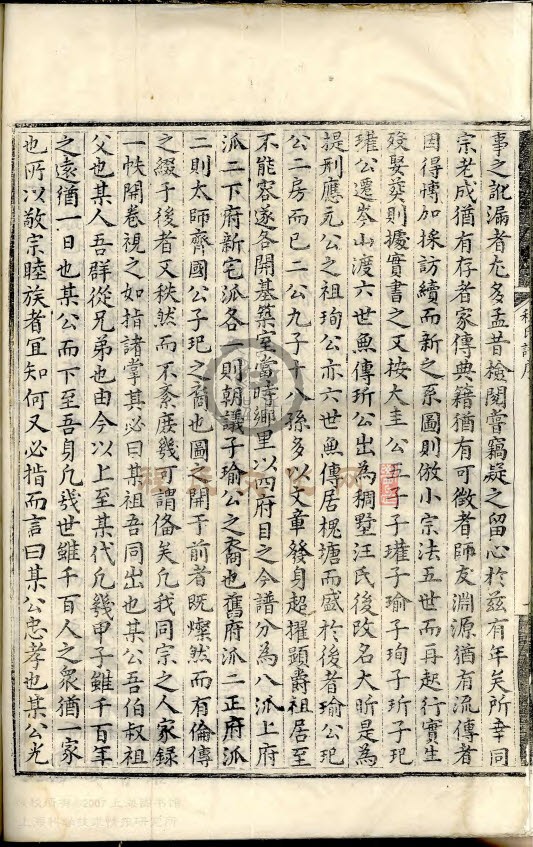 事之訛漏者尤多孟昔檢閱嘗竊疑之留心於茲有年矣所幸同
宗老成猶有存者家傳典籍猶有可徵者師友淵源猶有流傳者
因得博加採訪續而新之系圖則倣小宗法五世而再起行實生
歿娶葬則據實書之又按大圭公五子子瓘子瑜子珣子玥子玘
瓘公還岑山渡六世無傳玥公出為稠墅汪氏後改名大昕是為
提刑應元公之祖珣公亦六世無傳居槐塘而盛於後者瑜公玘
公二房而已二公九子十八孫多以文章發身超擢顯爵祖居至
不能容遂各開基築室當時鄉里以四府目之今譜分為八派上府
派二下府新宅派各一則朝議子瑜公之裔也舊府派二正府派
二則太師齊國公子玘之裔也圖之開于前者既燦然而有倫傳
之綴于後者又秩然而不紊庶幾可謂俻矣凡我同宗之人家錄
一帙開卷視之如指諸掌其必曰某祖吾同出也某公吾伯叔祖
父也某人吾群從兄弟也由今以上至某代凡幾甲子雖千百年
之遠猶一日也某公而下至吾身凡幾世雖千百人之衆猶一家
也所以敬宗睦族者宜知何又必指而言曰某公忠孝也某公光